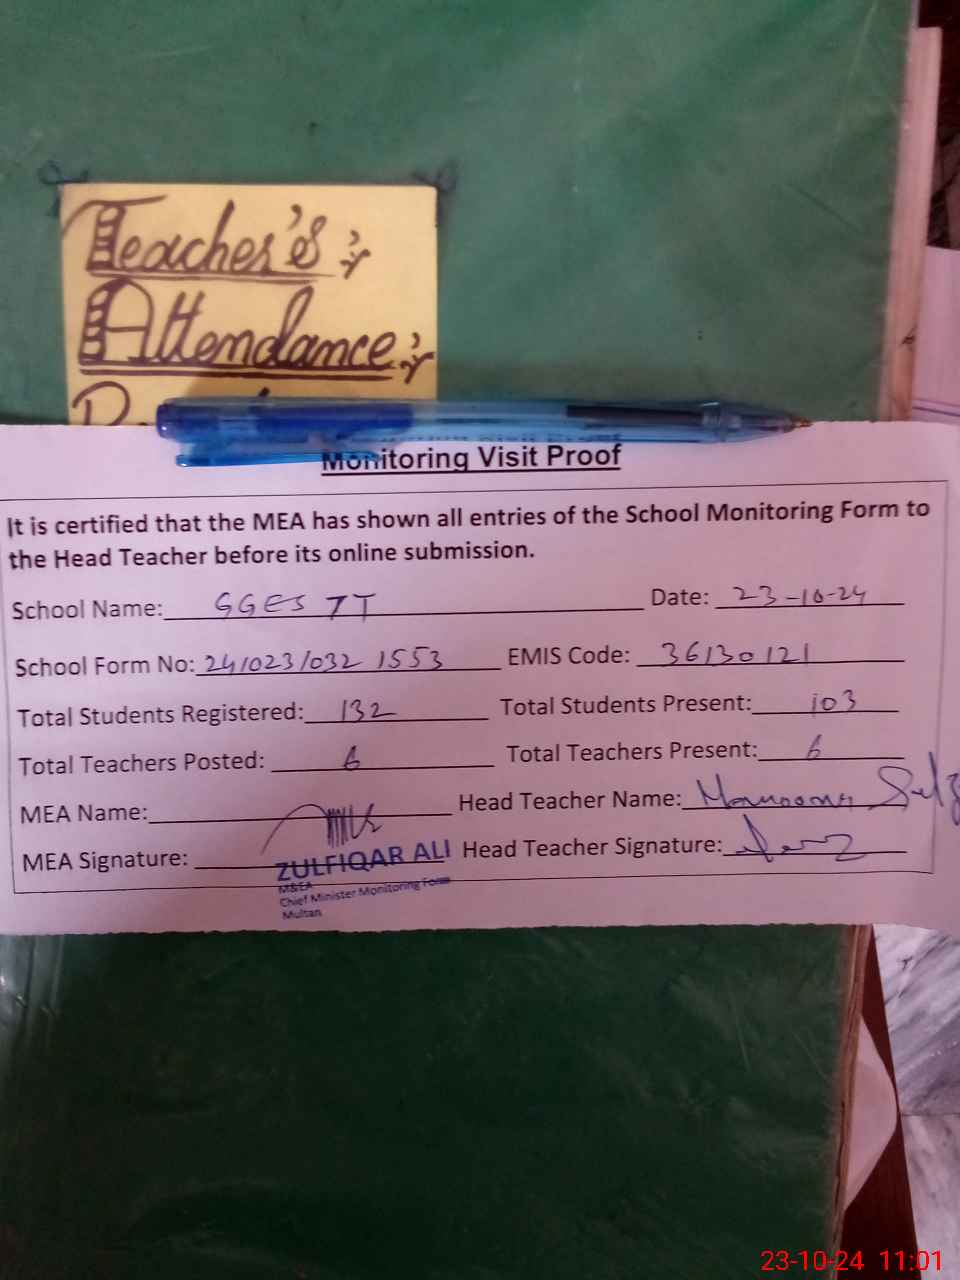 Teacher's
Attendance
Monitoring Visit Proof
It is certified that the MEA has shown all entries of the School Monitoring Form to
the Head Teacher before its online submission.
School Name: GGES 7T Date: 23-10-24
School Form No: 241023/032 1553 EMIS Code: 36130121
Total Students Registered: 132 Total Students Present: 103
Total Teachers Posted: 6 Total Teachers Present: 6
MEA Name: Head Teacher Name:
MEA Signature: Head Teacher Signature:
ZULFIQAR ALI
M&EA
Chief Minister Monitoring Force
Multan
23-10-24 11:01